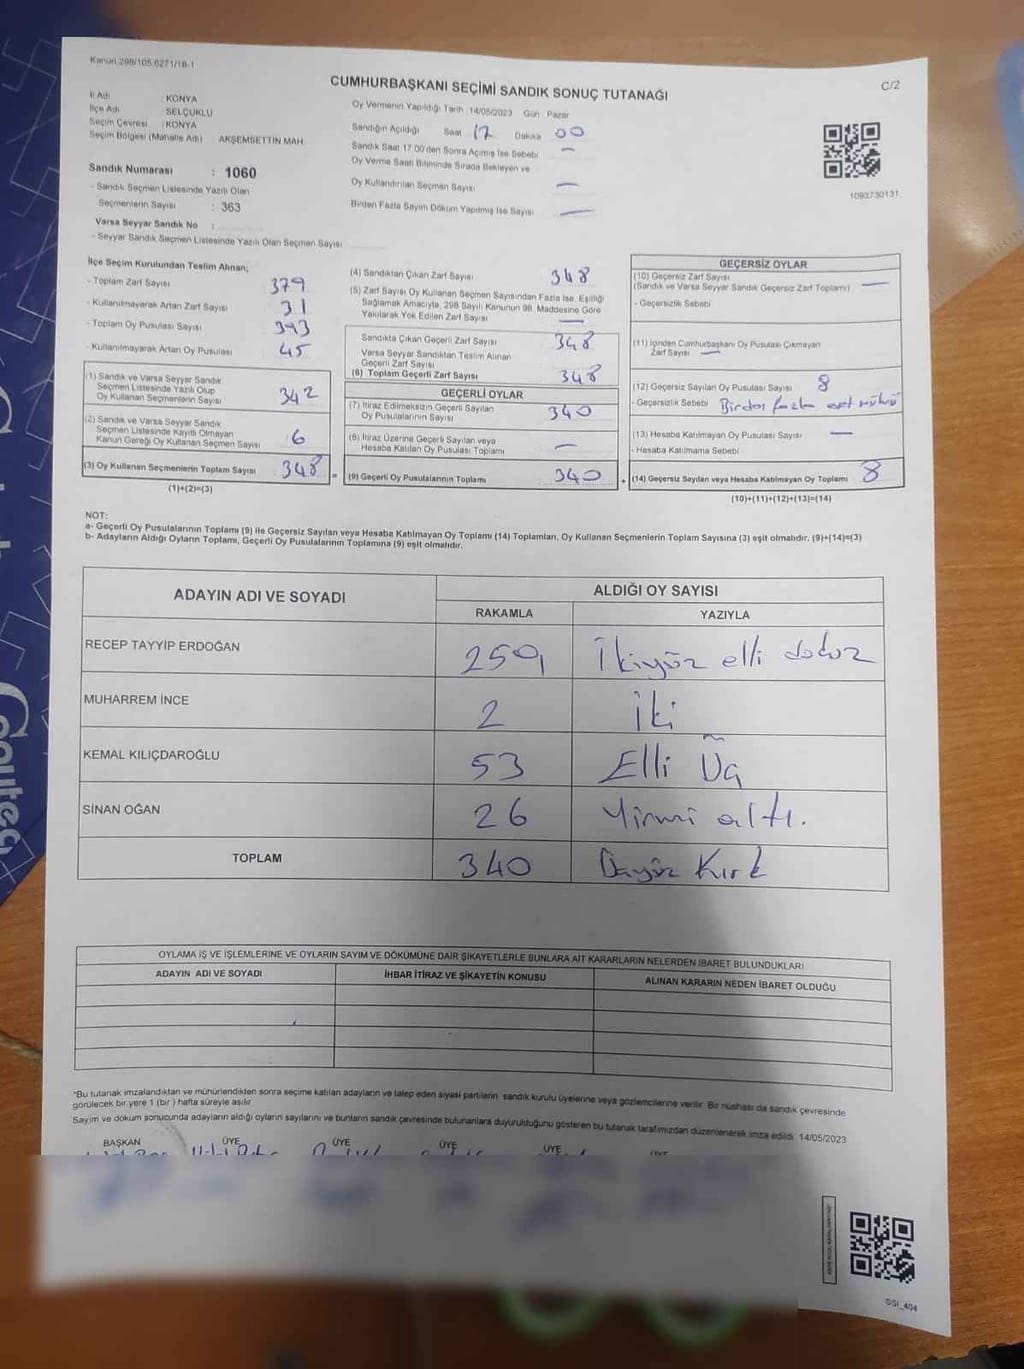 Kanun 298/105,6271/18-1
CUMHURBAŞKANI SEÇİMİ SANDIK SONUÇ TUTANAĞI
C/2
İl Adı : KONYA
İlçe Adı : SELÇUKLU
Seçim Çevresi : KONYA
Seçim Bölgesi (Mahalle Adı) : AKŞEMSETTİN MAH.
Sandık Numarası : 1060
- Sandık Seçmen Listesinde Yazılı Olan
Seçmenlerin Sayısı : 363
Varsa Seyyar Sandık No :
- Seyyar Sandık Seçmen Listesinde Yazılı Olan Seçmen Sayısı
Oy Vermenin Yapıldığı Tarih :14/05/2023 Gün Pazar
Sandığın Açıldığı Saat 17 Dakika 00
Sandık Saat 17.00'den Sonra Açılmış İse Sebebi —
Oy Verme Saati Bitiminde Sırada Bekleyen ve
Oy Kullandırılan Seçmen Sayısı —
Birden Fazla Sayım Döküm Yapılmış İse Sayısı —
1093730131
İlçe Seçim Kurulundan Teslim Alınan;
- Toplam Zarf Sayısı 379
- Kullanılmayarak Artan Zarf Sayısı 31
- Toplam Oy Pusulası Sayısı 393
- Kullanılmayarak Artan Oy Pusulası 45
(1) Sandık ve Varsa Seyyar Sandık
Seçmen Listesinde Yazılı Olup
Oy Kullanan Seçmenlerin Sayısı 342
(2) Sandık ve Varsa Seyyar Sandık
Seçmen Listesinde Kayıtlı Olmayan
Kanun Gereği Oy Kullanan Seçmen Sayısı 6
(3) Oy Kullanan Seçmenlerin Toplam Sayısı 348
(1)+(2)=(3)
(4) Sandıktan Çıkan Zarf Sayısı 348
(5) Zarf Sayısı Oy Kullanan Seçmen Sayısından Fazla İse, Eşitliği
Sağlamak Amacıyla, 298 Sayılı Kanunun 98. Maddesine Göre
Yakılarak Yok Edilen Zarf Sayısı —
Sandıkta Çıkan Geçerli Zarf Sayısı 348
Varsa Seyyar Sandıktan Teslim Alınan
Geçerli Zarf Sayısı
(6) Toplam Geçerli Zarf Sayısı 348
GEÇERLİ OYLAR
(7) İtiraz Edilmeksizin Geçerli Sayılan
Oy Pusulalarının Sayısı 340
(8) İtiraz Üzerine Geçerli Sayılan veya
Hesaba Katılan Oy Pusulası Toplamı —
= (9) Geçerli Oy Pusulalarının Toplamı 340 +
GEÇERSİZ OYLAR
(10) Geçersiz Zarf Sayısı
(Sandık ve Varsa Seyyar Sandık Geçersiz Zarf Toplamı) —
- Geçersizlik Sebebi
(11) İçinden Cumhurbaşkanı Oy Pusulası Çıkmayan
Zarf Sayısı —
(12) Geçersiz Sayılan Oy Pusulası Sayısı 8
- Geçersizlik Sebebi Birden fazla evet mührü
(13) Hesaba Katılmayan Oy Pusulası Sayısı —
- Hesaba Katılmama Sebebi
(14) Geçersiz Sayılan veya Hesaba Katılmayan Oy Toplamı 8
(10)+(11)+(12)+(13)=(14)
NOT:
a- Geçerli Oy Pusulalarının Toplamı (9) ile Geçersiz Sayılan veya Hesaba Katılmayan Oy Toplamı (14) Toplamları, Oy Kullanan Seçmenlerin Toplam Sayısına (3) eşit olmalıdır. (9)+(14)=(3)
b- Adayların Aldığı Oyların Toplamı, Geçerli Oy Pusulalarının Toplamına (9) eşit olmalıdır.
ADAYIN ADI VE SOYADI
ALDIĞI OY SAYISI
RAKAMLA YAZIYLA
RECEP TAYYİP ERDOĞAN 259 İkiyüz elli dokuz
MUHARREM İNCE 2 İki
KEMAL KILIÇDAROĞLU 53 Elli Üç
SİNAN OĞAN 26 Yirmi altı.
TOPLAM 340 Üçyüz Kırk
OYLAMA İŞ VE İŞLEMLERİNE VE OYLARIN SAYIM VE DÖKÜMÜNE DAİR ŞİKAYETLERLE BUNLARA AİT KARARLARIN NELERDEN İBARET BULUNDUKLARI
ADAYIN ADI VE SOYADI İHBAR İTİRAZ VE ŞİKAYETİN KONUSU ALINAN KARARIN NEDEN İBARET OLDUĞU
*Bu tutanak imzalandıktan ve mühürlendikten sonra seçime katılan adayların ve talep eden siyasi partilerin sandık kurulu üyelerine veya gözlemcilerine verilir. Bir nüshası da sandık çevresinde
görülecek bir yere 1 (bir ) hafta süreyle asılır.
Sayım ve döküm sonucunda adayların aldığı oyların sayılarını ve bunların sandık çevresinde bulunanlara duyurulduğunu gösteren bu tutanak tarafımızdan düzenlenerek imza edildi. 14/05/2023
BAŞKAN ÜYE ÜYE ÜYE ÜYE ÜYE
SSI_404